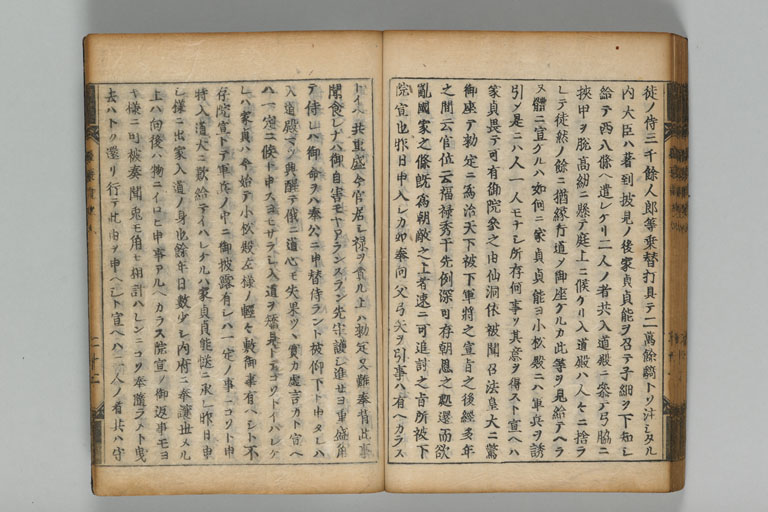 徒ノ侍三千餘人郎等乗替打具テ二萬餘騎トソ注シタル
内大臣ハ著到披見ノ後家貞貞能ヲ召テ子細ヲ下知シ
給テ西八條ヘ遣レケリ二人ノ者共入道殿ニ参テ弓脇ニ
挟甲ヲ脱高紐ニ懸テ庭上ニ候ケリ入道殿ハ人々ニ捨ラ
レテ徒然ノ餘ニ猶縁行道メ御座ケルカ此等ヲ見給テヘラ
ヌ體ニ宣ケルハ如何ニ家貞貞能ヨ小松殿ニハ軍兵ヲ誘
引メ是ニハ人一人モナシ所存何事ソ其意ヲ得スト宣ヘハ
家貞畏テ可有御院参之由仙洞依被聞召法皇大ニ驚
御座テ勅定ニ為治天下被下軍将之宣旨之後經多年
之間云官位云福禄秀于先例深可存朝恩之処還而欲
亂國家之條既為朝敵之上者速ニ可追討之旨所被下
院宣也昨日申入レカ如奉向父弓矢ヲ引事ハ有ヘカラス
トイヘ共重盛今官君シ禄ヲ貪ル上ハ勅定又難奉背此事
聞食レナハ御自害モヤアランスラン先守護シ進セヨ重盛角
テ侍レハ御命ヲハ奉公ニ申替侍ラント被仰下ト申タレハ
入道殿マツ興醒テ俄ニ道心モ失果ツヽ實カ虚言カト宣ヘ
ハ一定ニ候ト申スヨモサラシト入道ヲ矯見トテコソトイハレケ
レハ家貞ハ今始テ小松殿左様ノ輕々敷御事有ヘシト不
存院宣トテ軍兵ノ中ニ御披露有レハ一定ノ事ニコソト申
特入道大ニ歎給テイハレケルハ家貞貞能慥ニ承レ昨日申
シ様ニ出家入道ノ身也餘年日數少シ内府ニ奉讓世メル
上ハ向後ハ物ニイロヒ申事アルヘカラス院宣ノ御返事モヨ
キ様ニ可被奏聞兎モ角モ相計ハレンニコソ奉隨ラメト曳
去ハトク還リ行テ此由ヲ申ヘシト宣ヘハ二人ノ者共ハ守